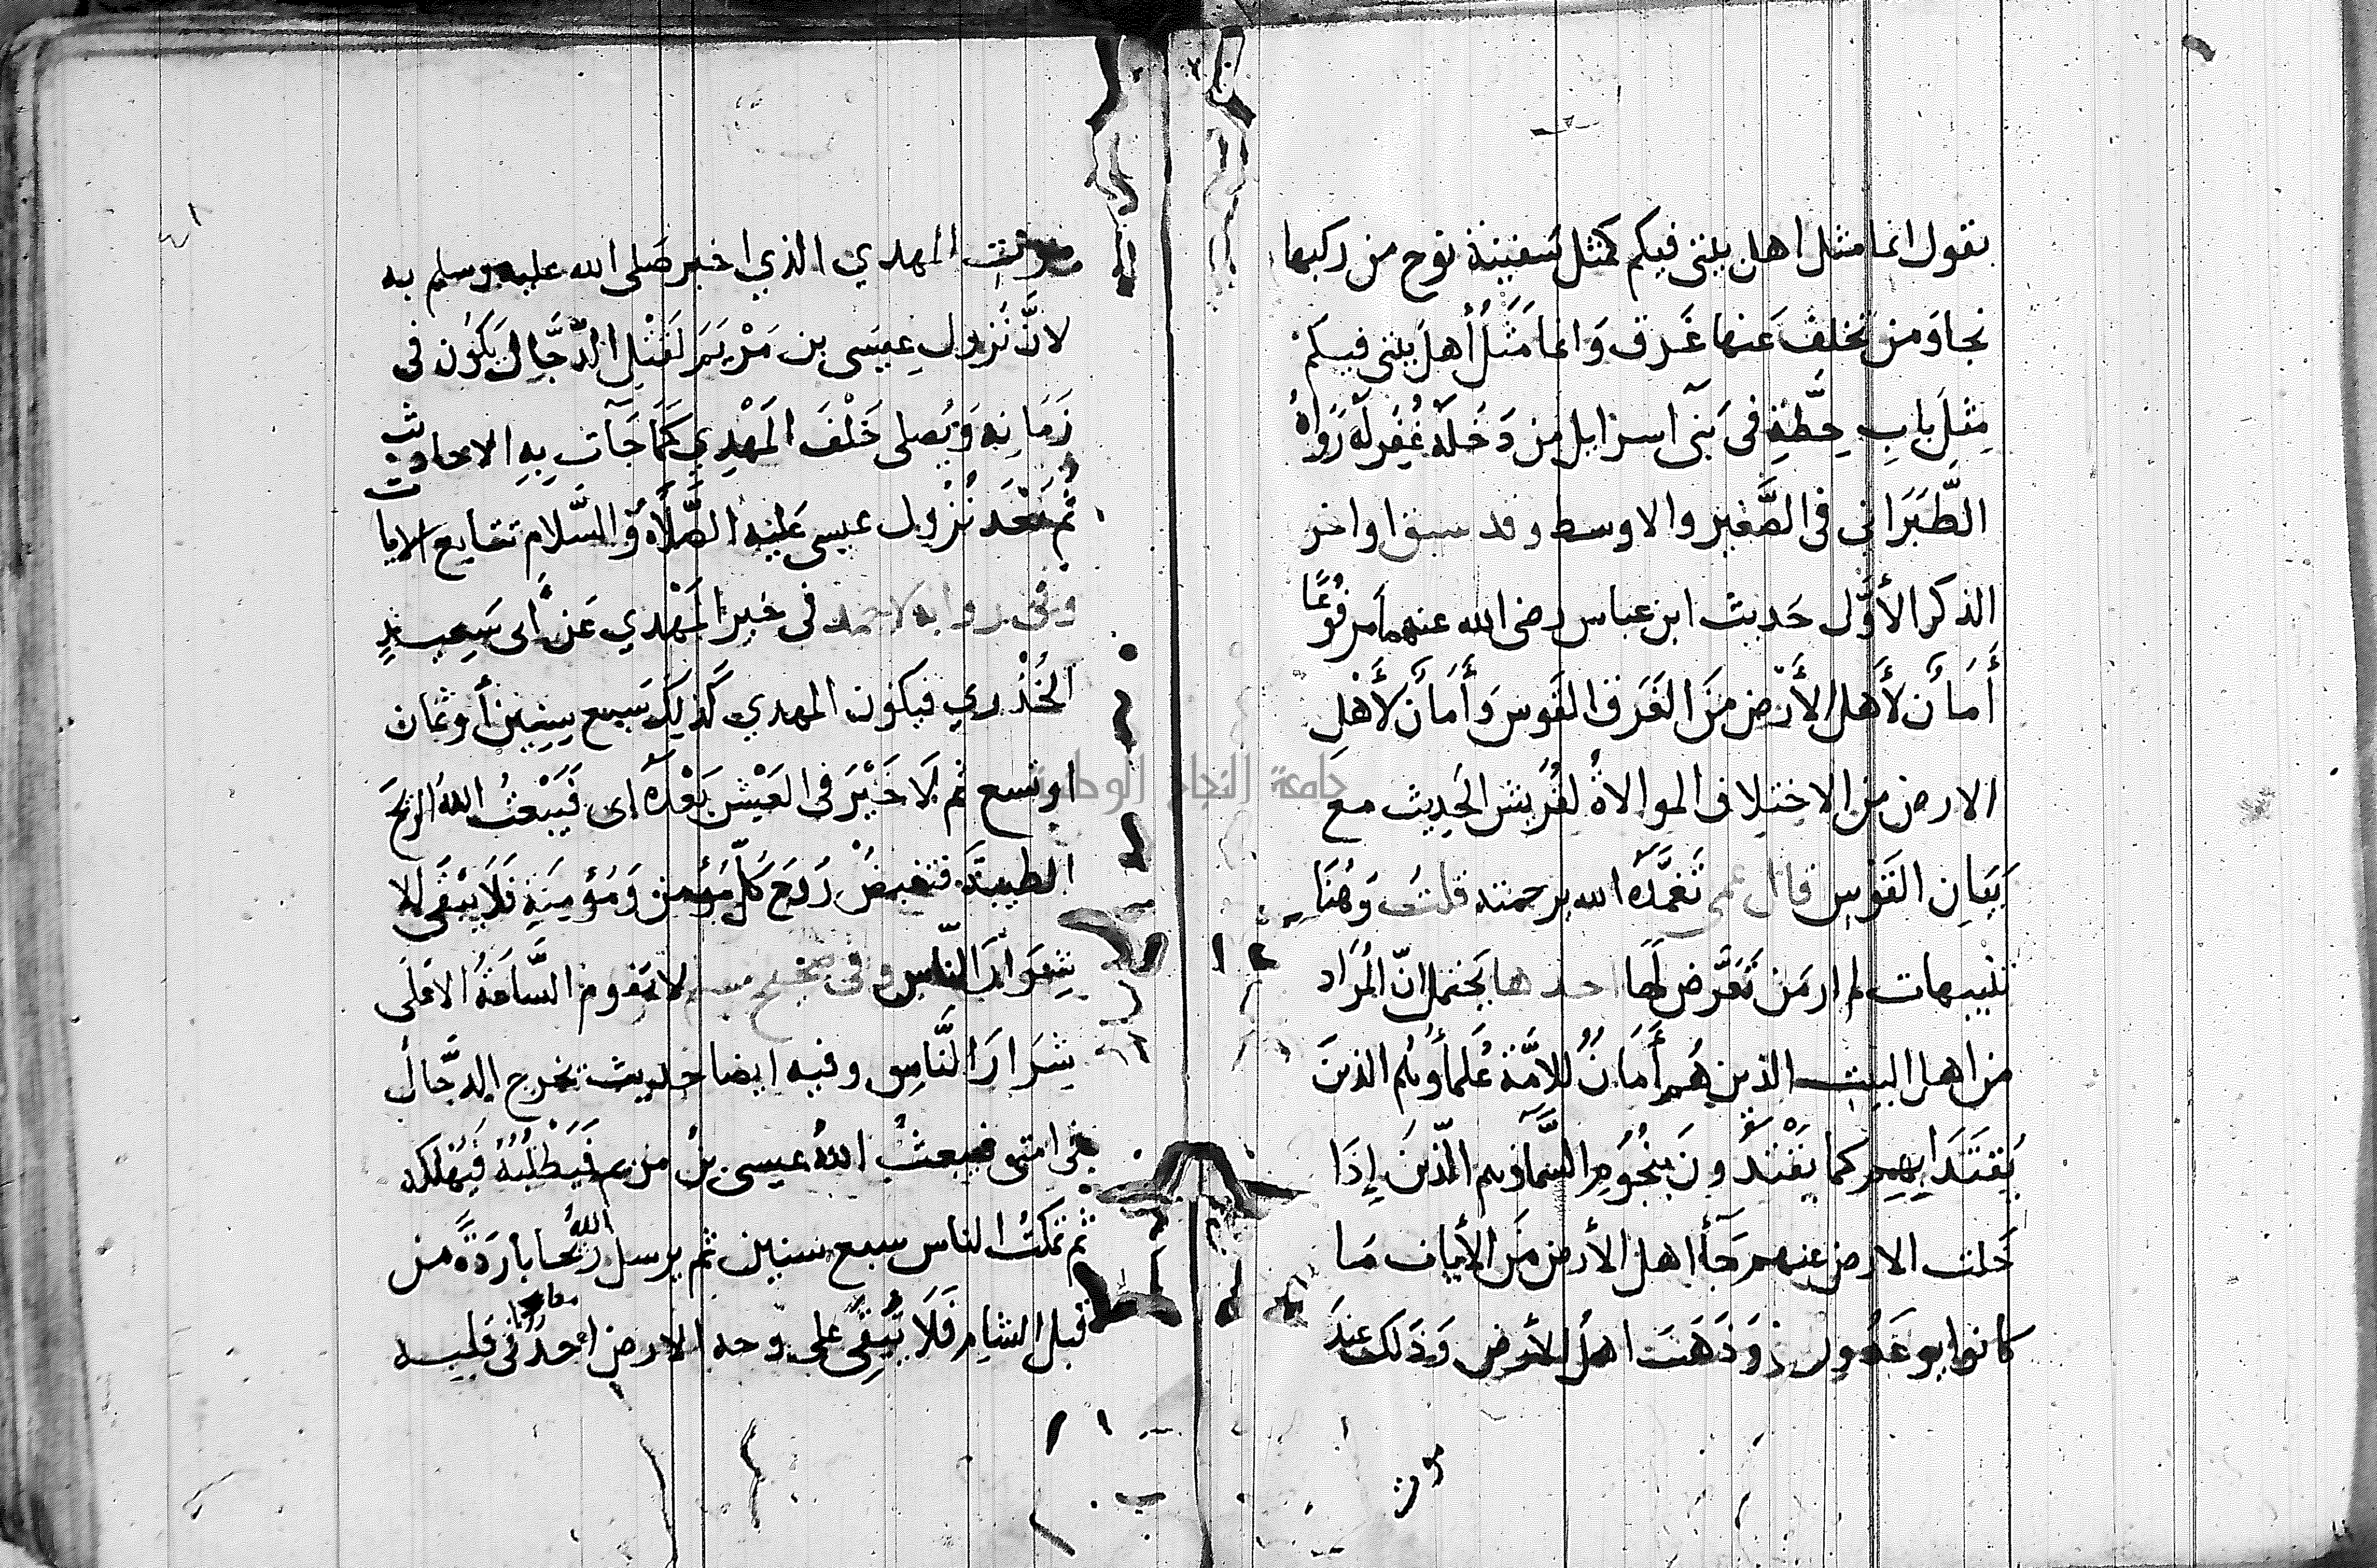 يقول انما مثل اهل بيتي فيكم كمثل سفينة نوح من ركبها
نجا وَمن تخلف عَنها غَرق وَانما مَثَلُ أهل بيتي فيكم
مِثل بابِ حِطّةٍ في بَني آسرايل مَن دَخَلَهُ غُفِرَ لَهُ رَوَاهُ
الطَّبَرَاني في الصَّغير والاوسط وقد سبق اواخر
الذكر الأوَّل حَديث ابن عباس رضى الله عنهما مَرفُوعًا
أَمَانٌ لأَهل الأَرْض مِنَ الغَرَق القَوس وَأَمَانٌ لأَهْلِ
الارض من الاختِلاف الموالاةُ لقُرَيش الحَديث مع
بَيَانِ القَوْسِ قال عمى تَغَمَّدَهُ الله برحمته قلتُ وَهُنَا
تنبيهات لم ار مَن تَعَرَّض لَهَا احدها يحتمل انّ المُرَاد
من اهل البيت الذين هُم أَمَانٌ للامّة عُلمَاؤهُم الذينَ
يُقتَدَا بِهم كما يَقْتَدُونَ بنُجُومِ السَّمَاء وَهم الّذينَ إِذَا
خَلت الارض عنهم جَآ اهلَ الأرض مِنَ الأيَاتِ مَا
كانوا يوعَدُون وَذَهَبَ اهلُ الأرض وَذلك عِندَ
موت المهدي الذي اخبر صَلى الله عليه وسلم به
لانَّ نُزول عِيسَى بن مَرْيَمَ لقَتْلِ الدَّجَّالِ يَكُون في
زَمَانِه وَيُصلى خَلْفَ المَهْدِي كَمَا جَآت بِهِ الاحاديث
ثم بَعْدَ نُزول عيسى عَليْه الصَّلاَة وَالسَّلام تتابع الايات
وَفى روايه لاحمد فى خبر المَهْدي عَن أَبى سَعِيدٍ
الخُدْري فيكون المهدي كَذلِكَ سَبع سِنِين أَو ثمان
او تسع ثم لاَ خَيْرَ في العَيْش بَعْدَهُ اى فَيَبْعَثُ اللهُ الرّيحَ
الطيبَة فتقبضُ رُوحَ كُلّ مُؤمن وَمُؤمِنَةٍ فَلاَ يَبْقَى إلا
شِرَارَ النَّاس وفى صحيح مسلم لا تقوم السَّاعَةُ الا عَلَى
شِرَارَ النَّاسِ وفيه ايضا حديث يخرج الدجّال
فى امتى فيبعثُ اللهُ عيسى بنُ مريم فَيَطْلُبُهُ فَيُهْلكه
ثُم تمكثُ الناس سبع سنين ثم يرسل اللهُ ريحًا بارَدَةً من
قبل الشام فَلاَ يَبْقَى على وجه الارض احَدٌ فى قلبه